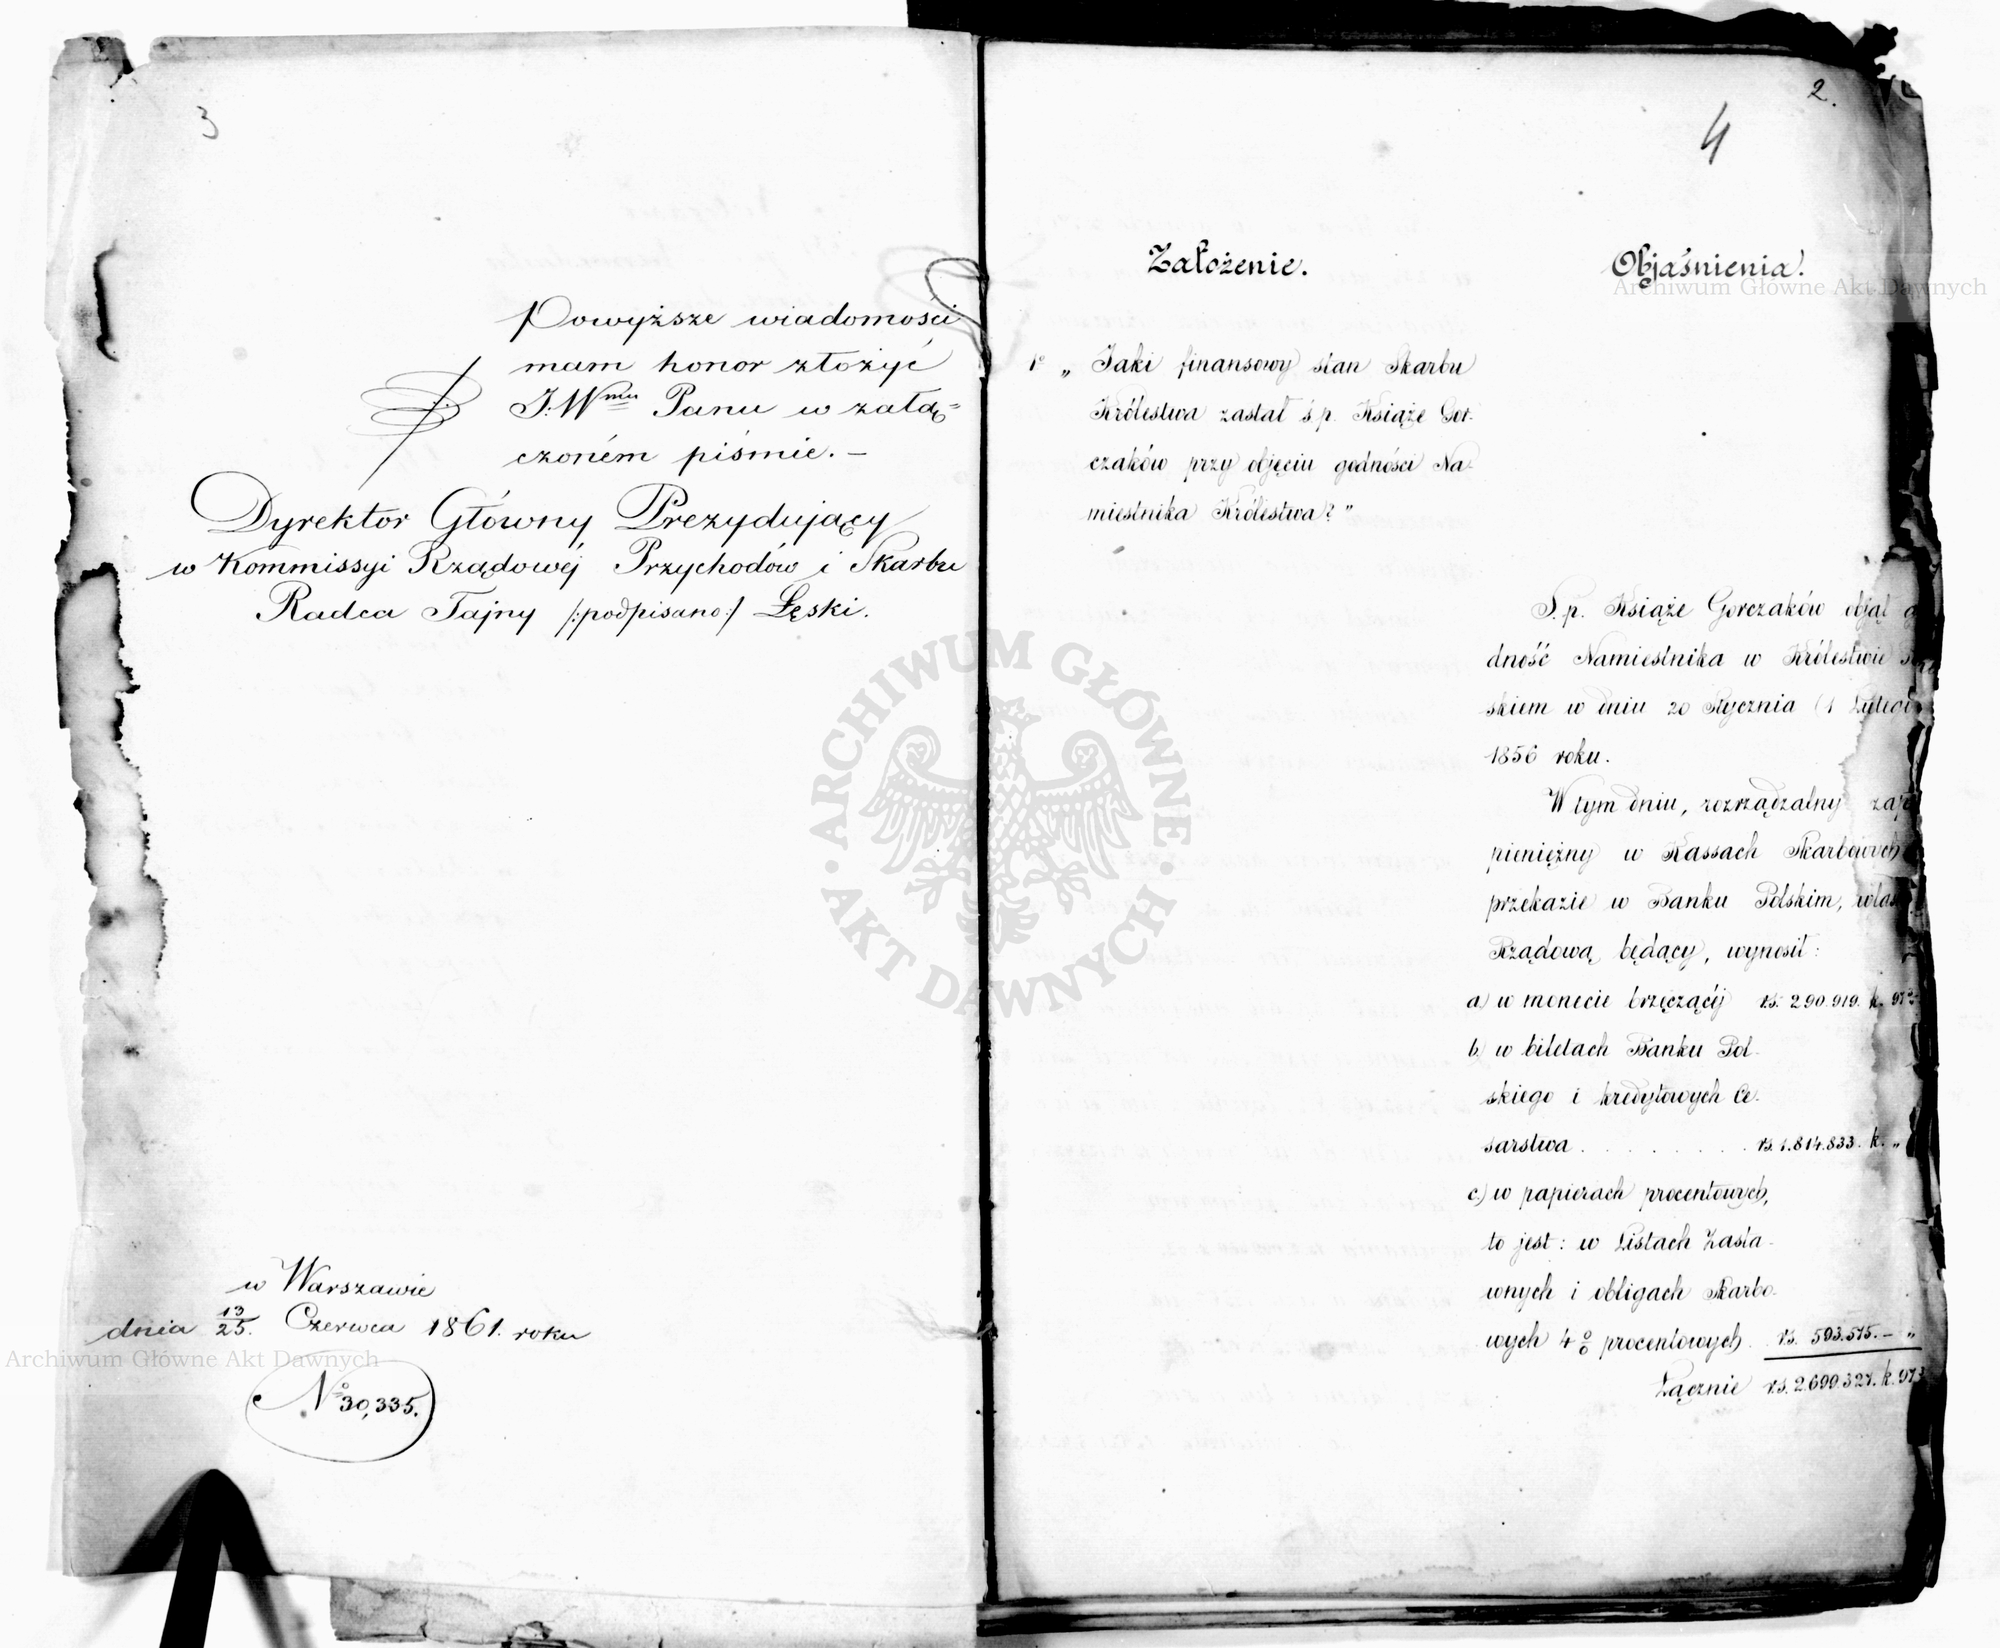 3
Powyższe wiadomości
mam honor złożyć
J.W<sup>mu</sup> Panu w załą=
czoném piśmie. –
Dyrektor Główny Prezydujący
w Kommissyi Rządowéj Przychodów i Skarbu
Radca Tajny /:podpisano:/ Łęski.
w Warszawie
dnia 13/25. Czerwca 1861. roku
№ 30,335.
2.
4
Założenie.
Objaśnienia.
1° „Jaki finansowy stan Skarbu
Królestwa zastał ś.p. Książe Gor-
czaków przy objęciu godności Na-
miestnika Królestwa?"
Ś.p. Książe Gorczaków objął
dność Namiestnika w Królestwie
skiem w dniu 20 Stycznia (1 Lutego
1856 roku.
W tym dniu, rozrządzalny
pieniężny w Kassach Skarbowych
przekazie w Banku Polskim,
Rządową będący, wynosił:
a) w monecie brzęczącéj rs. 290.919. k. 97
b) w biletach Banku Pol-
skiego i kredytowych Ce-
sarstwa . . . . . . . . rs. 1.814.833. k. „
c.) w papierach procentowych,
to jest: w Listach Zasta-
wnych i obligach Skarbo-
wych 4 % procentowych . . rs. 593.575. – „
Łącznie rs. 2.699.327. k. 97
ARCHIWUM GŁÓWNE AKT DAWNYCH
Archiwum Główne Akt Dawnych
Archiwum Główne Akt Dawnych